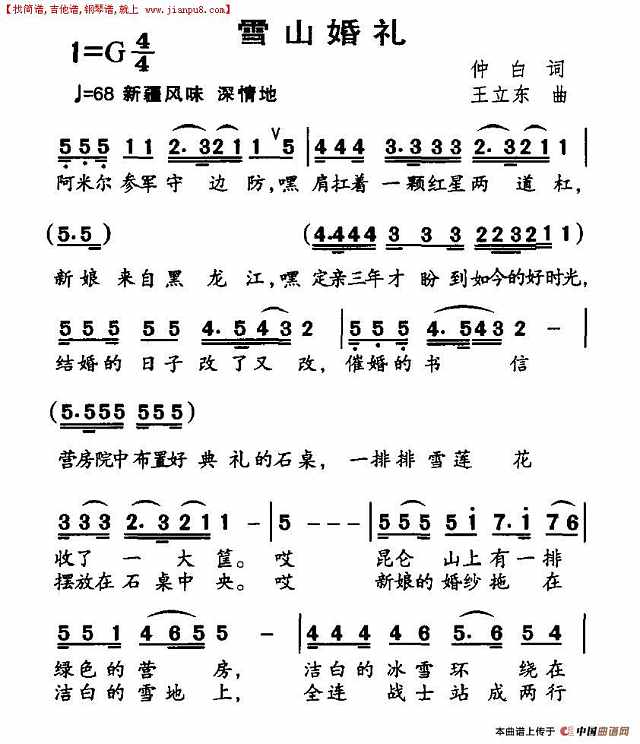 【找简谱,吉他谱,钢琴谱,就上 www.jianpu8.com】
雪山婚礼
1=G 4/4
♩=68 新疆风味 深情地
仲白 词
王立东 曲
5 5 5 1 1 2. 3 2 1 1 ∨ 5 | 4 4 4 3. 3 3 3 2. 3 2 1 1 |
阿米尔 参军 守 边 防,嘿 肩扛着 一颗红星 两 道 杠,
(5. 5) (4. 4 4 4 3 3 3 2 2 3 2 1 1)
新娘 来自 黑 龙 江,嘿 定亲三年才 盼 到如今的好时光,
5 5 5 5 5 4. 5 4 3 2 | 5 5 5 4. 5 4 3 2 - |
结婚的 日子 改了又 改, 催婚的 书 信
(5. 5 5 5 5 5 5)
营房院中布置好 典 礼的石桌, 一排排 雪莲 花
3 3 3 2. 3 2 1 1 - | 5 - - - | 5 5 5 5 1 7. 1 7 6 |
收了 一 大 筐。 哎 昆仑 山上有一排
摆放在 石 桌中 央。 哎 新娘的 婚纱 拖 在
5 5 1 4 6 5 5 - | 4 4 4 4 4 6 5. 6 5 4 |
绿色的 营 房, 洁白的 冰雪 环 绕在
洁白的 雪地 上, 全连 战士 站 成两行
本曲谱上传于 中国曲谱网